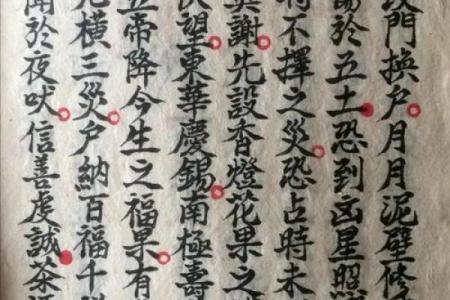 改門換户月月泥壁修
湯於五土恐到凶星照
時不擇之災恐占時未
奠謝先設香燈花果之
伏望東華慶錫南極壽
五帝降今生之福果有
九橫三災户納百福千祥
聞於夜吠信善虔誠茶酒